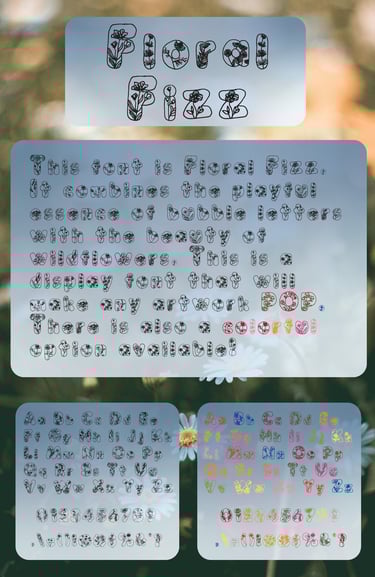 Floral
Fizz
This font is Floral Fizz.
It combines the playful
essence of bubble letters
with the beauty of
wildflowers. This is a
display font that will
make any artwork POP.
There is also a colorful
option available!
Aa Bb Cc Dd Ee
Ff Gg Hh Ii Jj Kk
Ll Mm Nn Oo Pp
Qq Rr Ss Tt Uu
Vv Ww Xx Yy Zz
0123456789
Aa Bb Cc Dd Ee
Ff Gg Hh Ii Jj Kk
Ll Mm Nn Oo Pp
Qq Rr Ss Tt Uu
Vv Ww Xx Yy Zz
0123456789